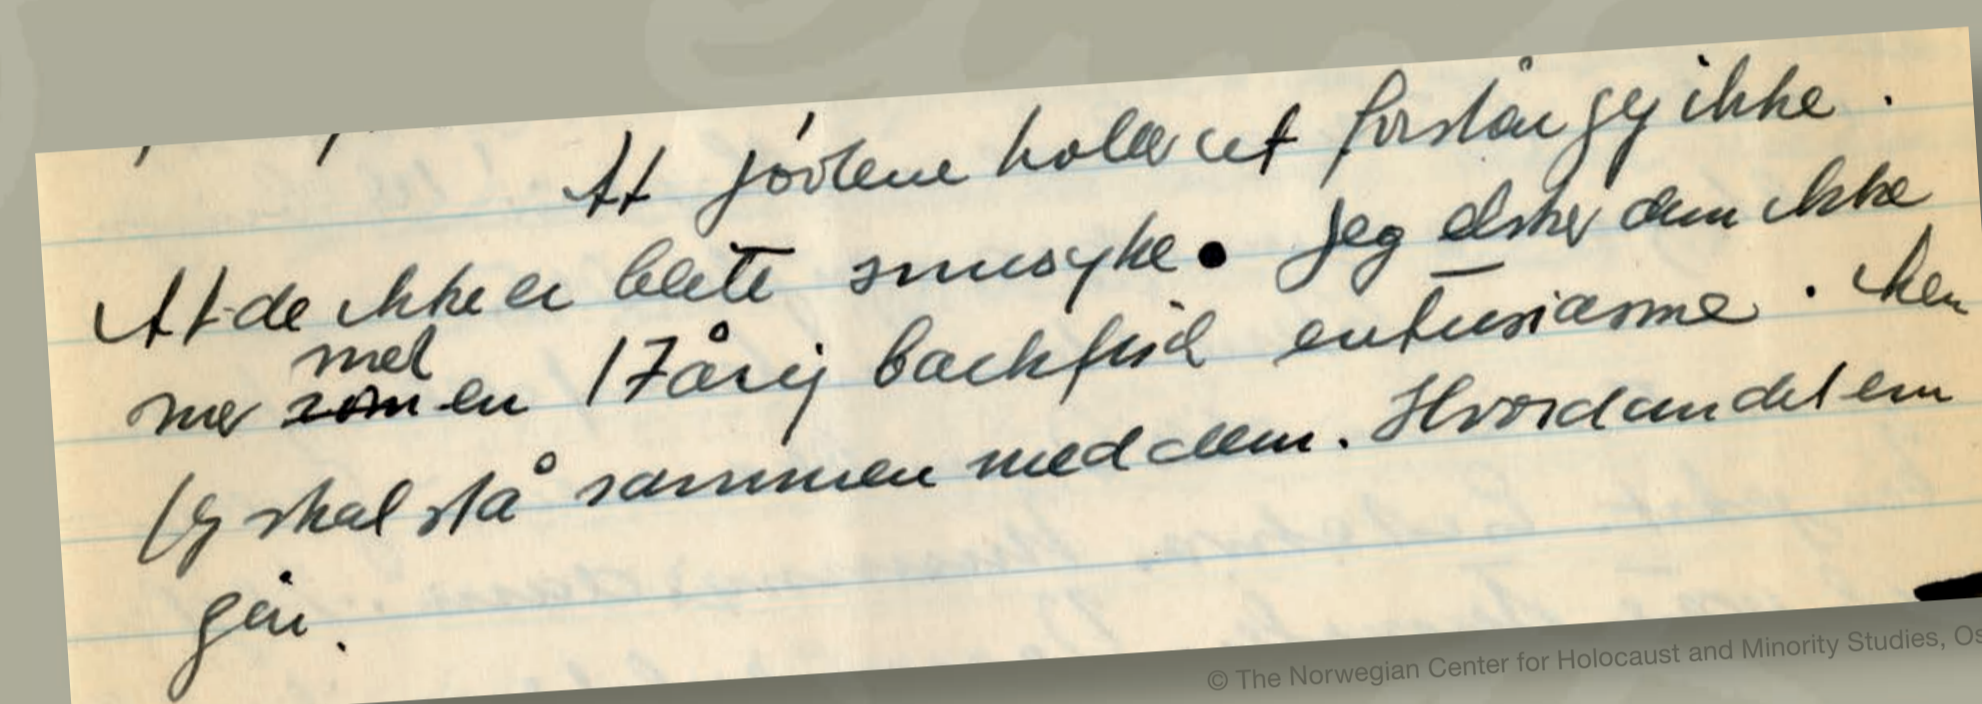 At jødene holder ut forstår jeg ikke.
At de ikke er blitt sinnsyke. Jeg elsker dem ikke
mer med som en 17årig backfisch entusiasme. Men
jeg skal stå sammen med dem. Hvordan det enn
går.
© The Norwegian Center for Holocaust and Minority Studies, Os